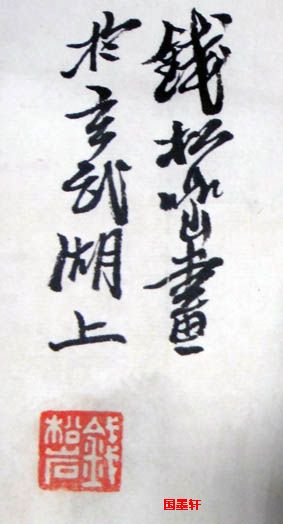 錢松嵒畫
於玄武湖上
錢松岩
国墨轩